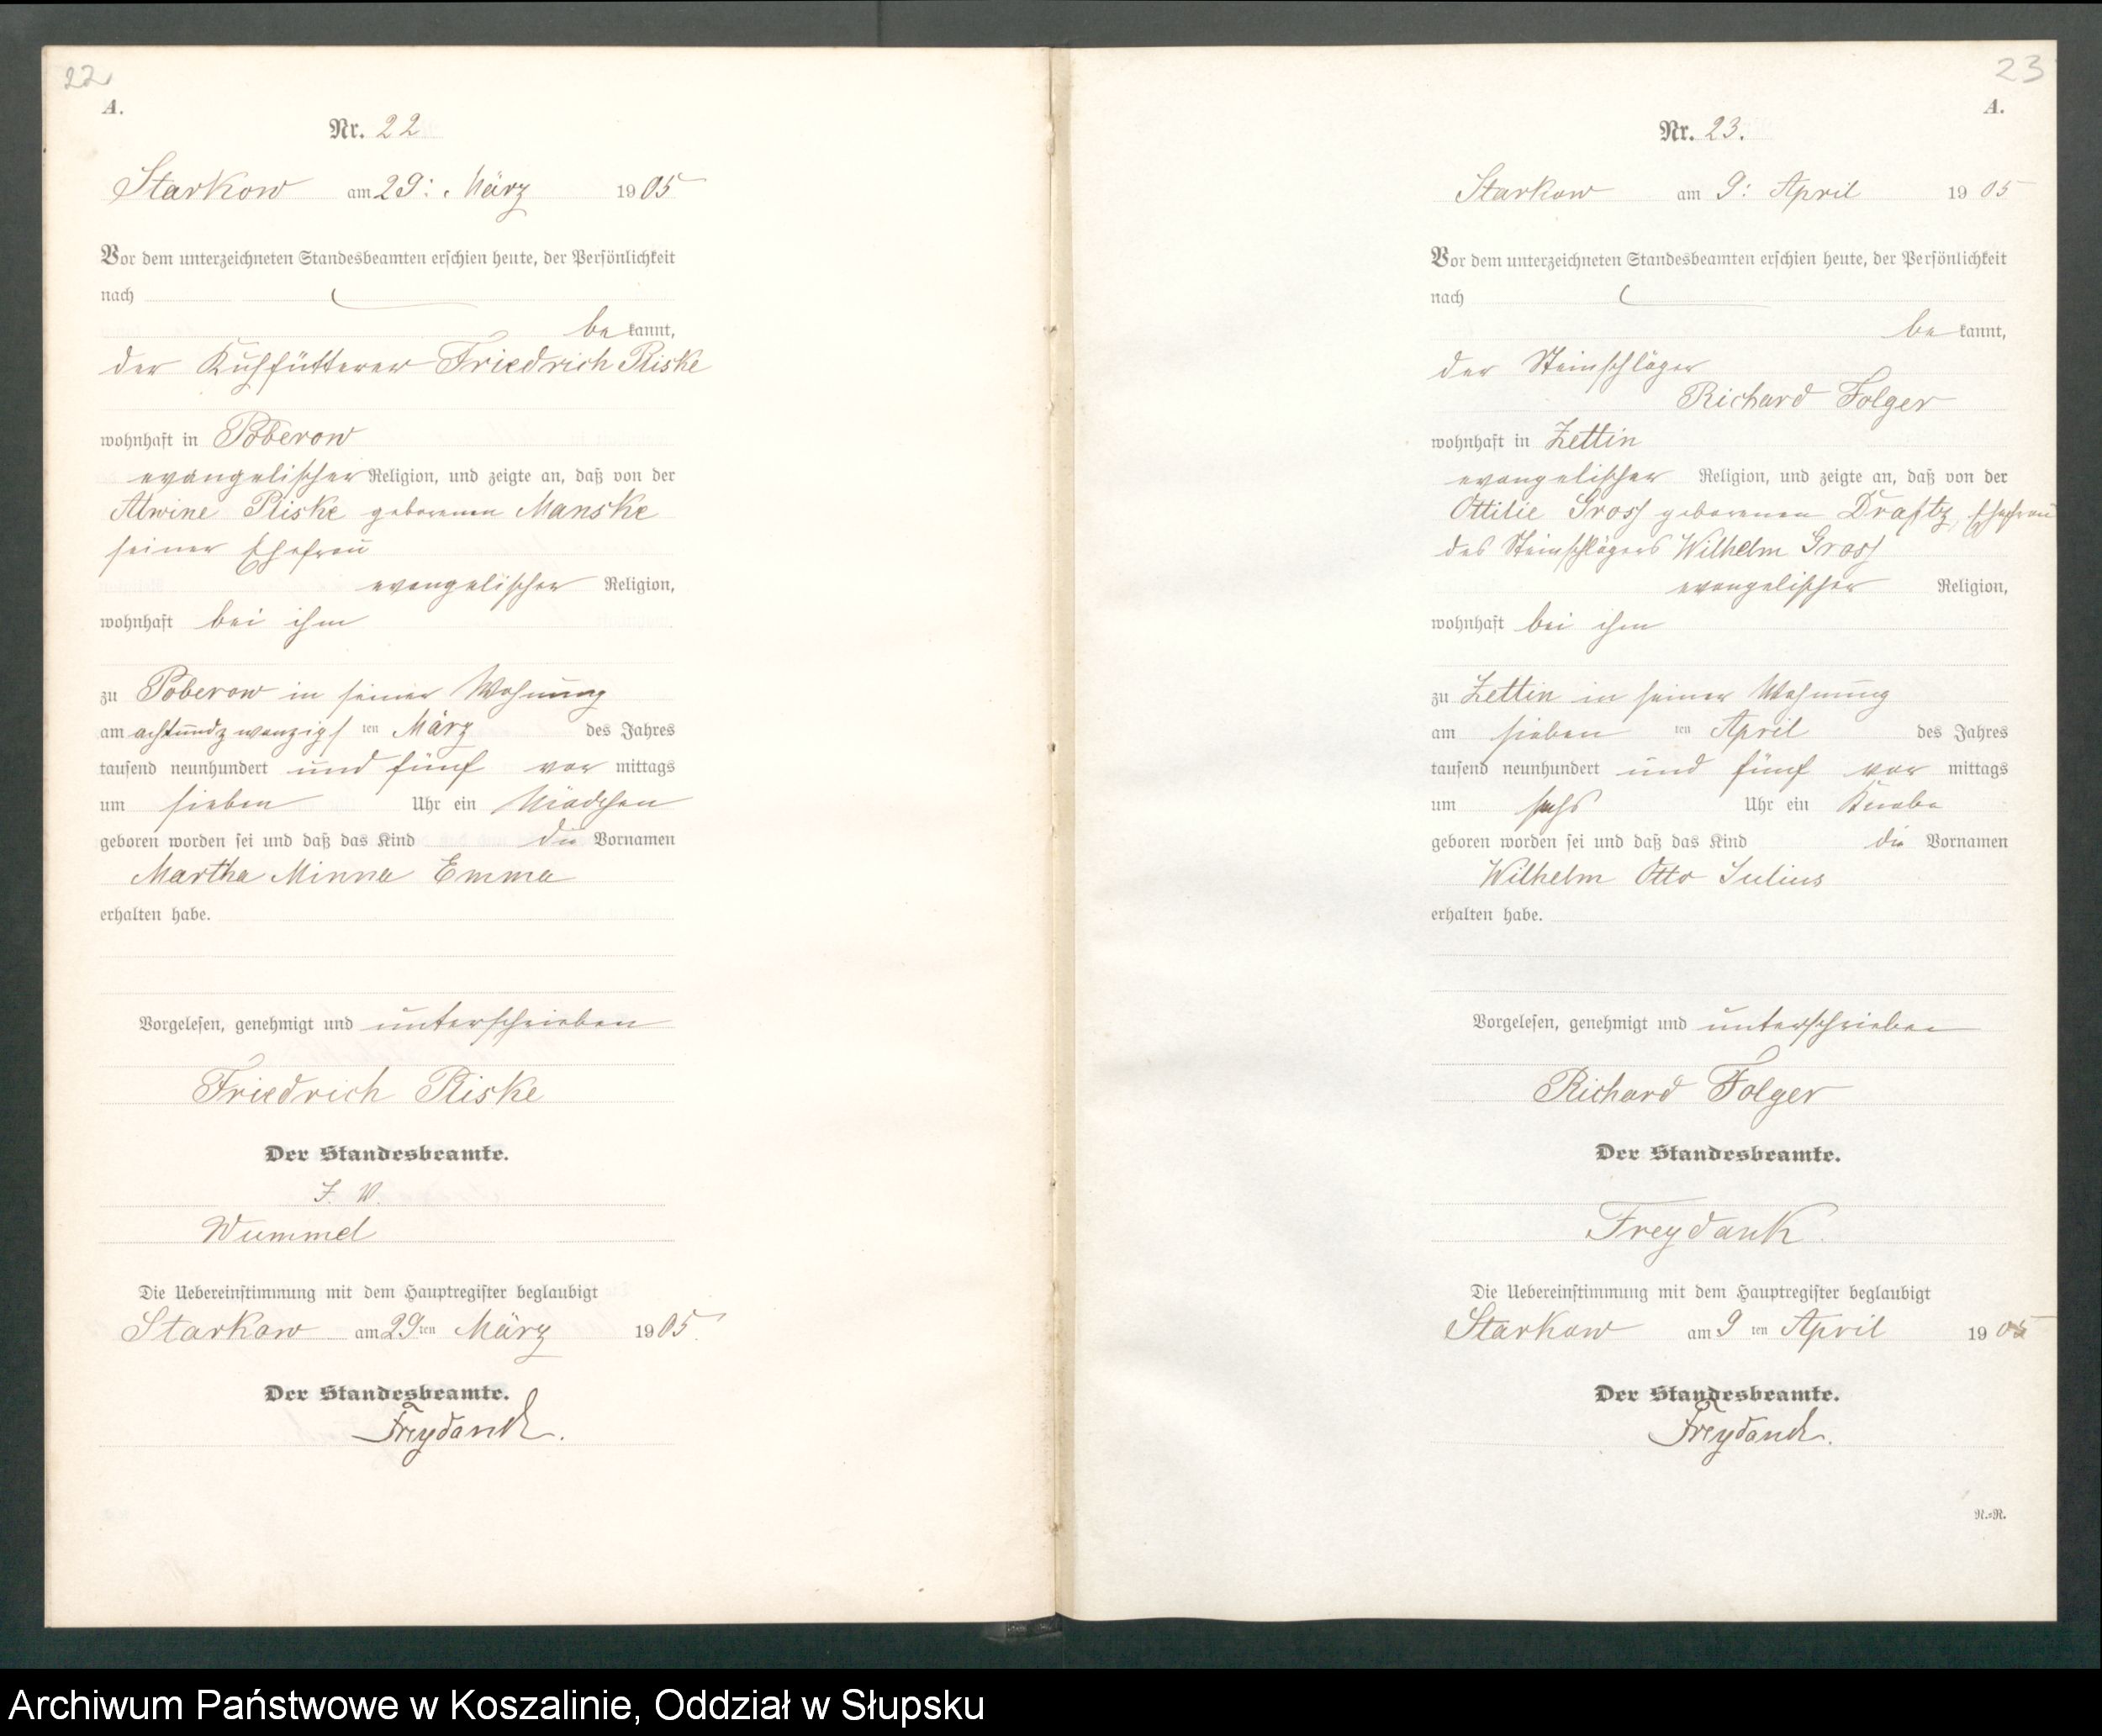 22
A.
Nr. 22
Starkow am 29: März 1905
Vor dem unterzeichneten Standesbeamten erschien heute, der Persönlichkeit
nach
be kannt,
der Kuhfütterer Friedrich Riske
wohnhaft in Poberow
evangelischer Religion, und zeigte an, daß von der
Alwine Riske geborenen Manske
seiner Ehefrau
evangelischer Religion,
wohnhaft bei ihm
zu Poberow in seiner Wohnung
am achtundzwanzigsten März des Jahres
tausend neunhundert und fünf vor mittags
um sieben Uhr ein Mädchen
geboren worden sei und daß das Kind die Vornamen
Martha Minna Emma
erhalten habe.
Vorgelesen, genehmigt und unterschrieben
Friedrich Riske
Der Standesbeamte.
I. V.
Wummel
Die Uebereinstimmung mit dem Hauptregister beglaubigt
Starkow am 29ten März 1905.
Der Standesbeamte.
Freydank.
23
A.
Nr. 23.
Starkow am 9: April 1905
Vor dem unterzeichneten Standesbeamten erschien heute, der Persönlichkeit
nach
be kannt,
der Steinschläger
Richard Folger
wohnhaft in Zettin
evangelischer Religion, und zeigte an, daß von der
Ottilie Gross geborenen Ehefrau
des Steinschlägers Wilhelm Gross
evangelischer Religion,
wohnhaft bei ihm
zu Zettin in seiner Wohnung
am sieben ten April des Jahres
tausend neunhundert und fünf vor mittags
um sechs Uhr ein Knabe
geboren worden sei und daß das Kind die Vornamen
Wilhelm Otto Julius
erhalten habe.
Vorgelesen, genehmigt und unterschrieben
Richard Folger
Der Standesbeamte.
Freydank.
Die Uebereinstimmung mit dem Hauptregister beglaubigt
Starkow am 9 ten April 1905
Der Standesbeamte.
Freydank.
N.=N.
Archiwum Państwowe w Koszalinie, Oddział w Słupsku